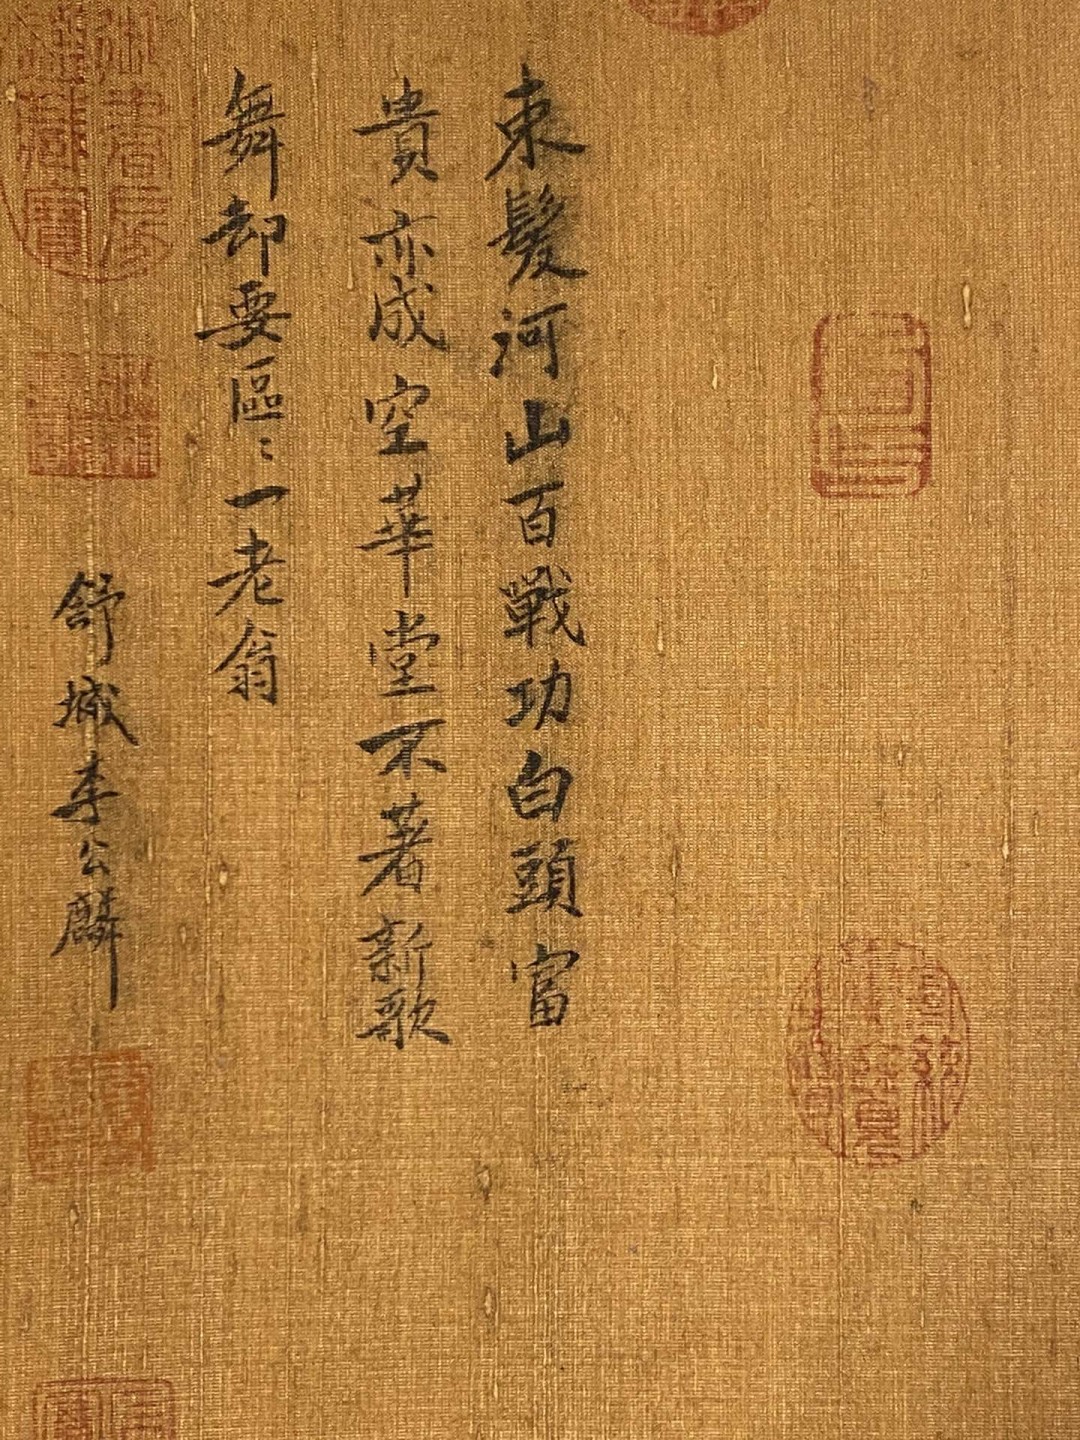 束髮河山百戰功白頭富
貴亦成空華堂不著新歌
舞却要區〻一老翁
舒城李公麟